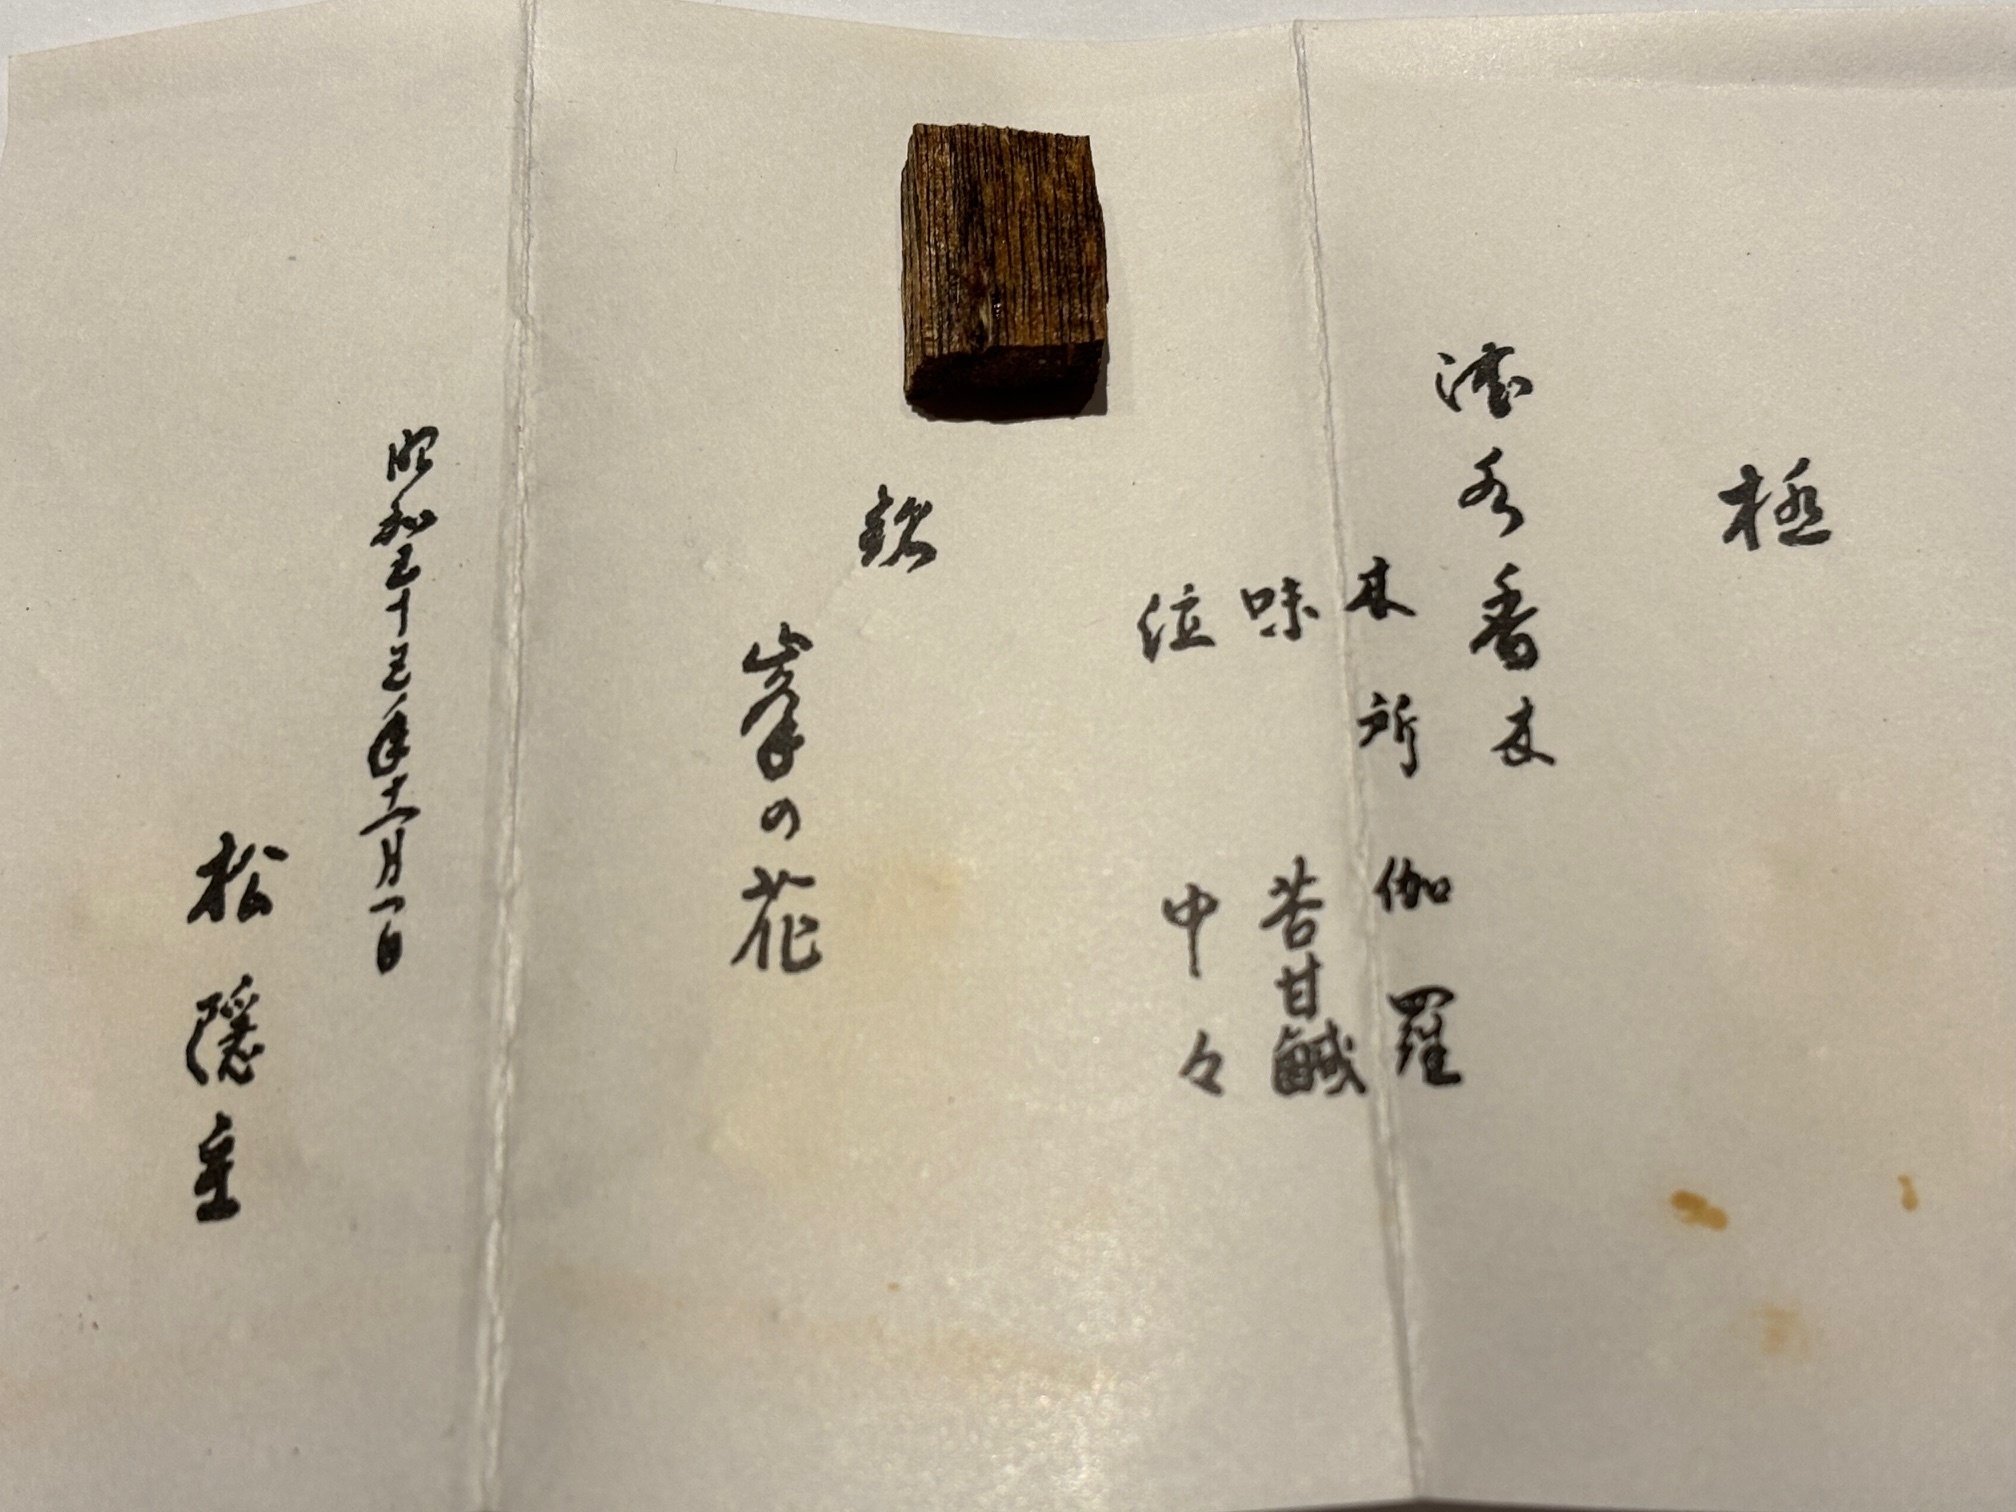 極
沈水香木
木所 伽羅
味 苦甘鹹
位 中々
銘
峯の花
昭和五十三年十一月一日
松隠主